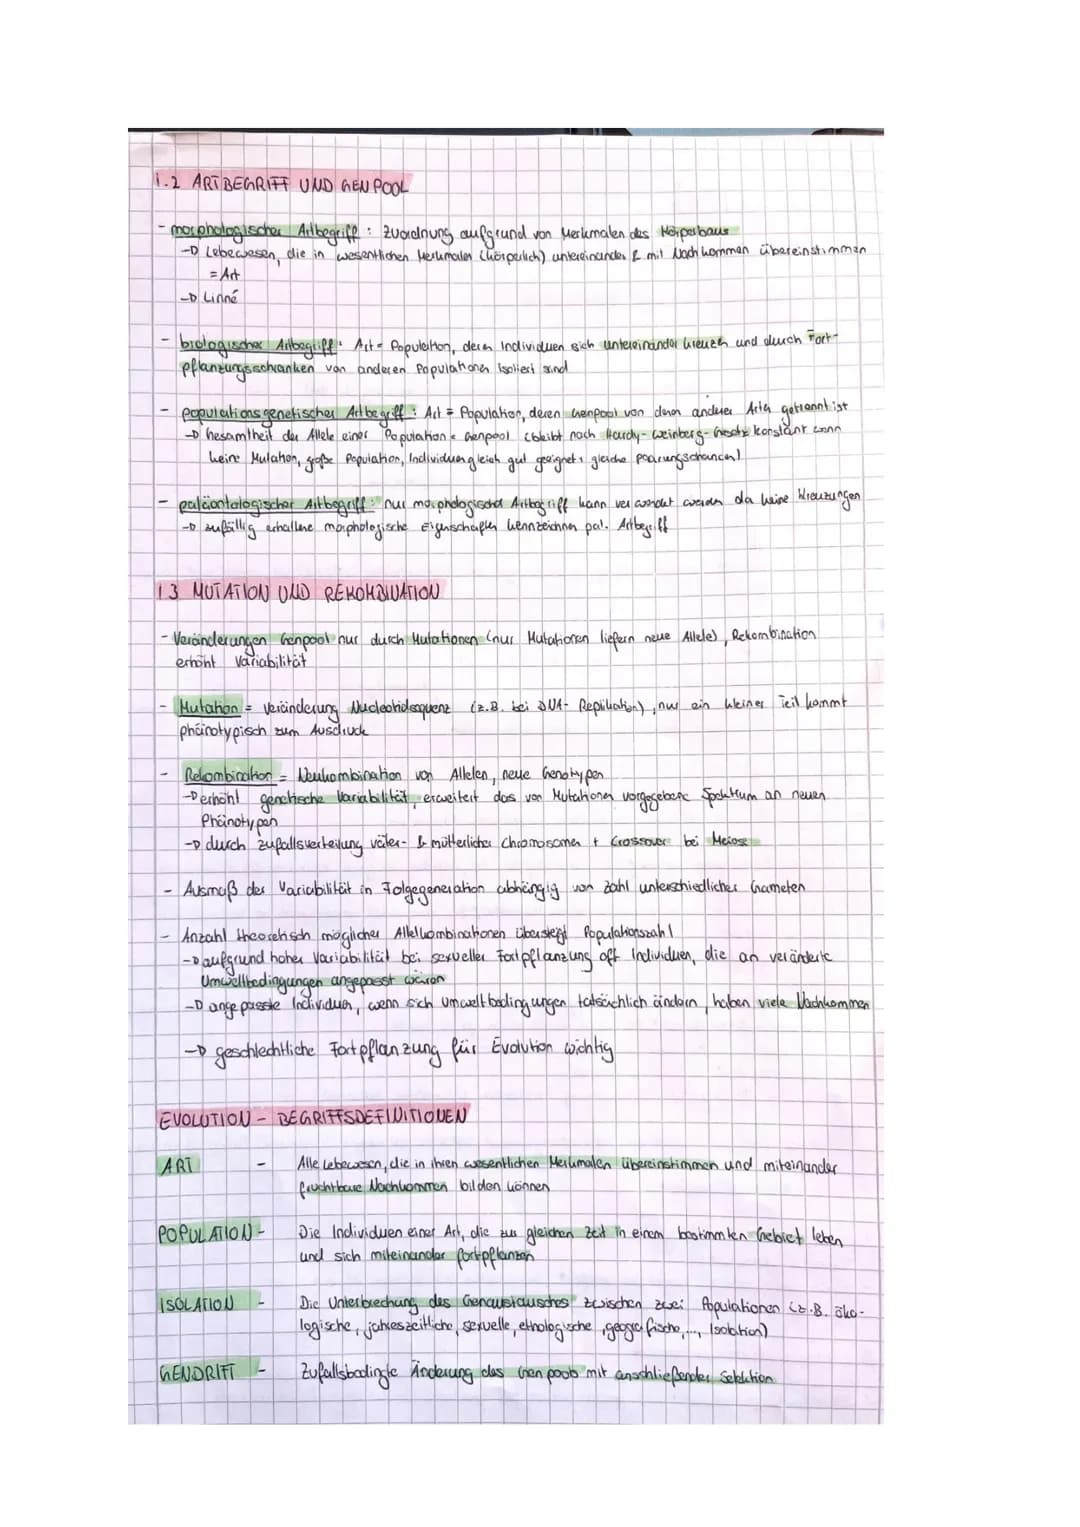 1.2 ARTBEGRIFF UND GENPOOL
- morphologischer Artbegriff : Zuordnung aufgrund von Merkmalen des Körperbaus
→ Lebewesen, die in wesentlichen Merkmalen (körperlich) untereinander & mit Nachkommen übereinstimmen
= Art
→ Linné
- biologischer Artbegriff: Art = Population, deren Individuen sich untereinander kreuzen und durch Fort-
pflanzungsschranken von anderen Populationen isoliert sind
- populationsgenetischer Artbegriff : Art = Population, deren Genpool von denen anderer Arten getrennt ist
→ Gesamtheit der Allele einer Population = Genpool (bleibt nach Hardy-Weinberg-Gesetz konstant wenn
keine Mutation, große Population, Individuen gleich gut geeignet, gleiche Paarungschancen)
- paläontologischer Artbegriff: nur morphologischer Artbegriff kann verwendet werden da keine Kreuzungen
→ zufällig erhaltene morphologische Eigenschaften kennzeichnen pal. Artbegriff
1.3 MUTATION UND REKOMBINATION
- Veränderungen Genpool nur durch Mutationen (nur Mutationen liefern neue Allele), Rekombination
erhöht Variabilität
- Mutation = Veränderung Nucleotidsequenz (z.B. bei DNA-Replikation), nur ein kleiner Teil kommt
phänotypisch zum Ausdruck
- Rekombination = Neukombination von Allelen, neue Genotypen
→ erhöht genetische Variabilität, erweitert das von Mutationen vorgegebene Spektrum an neuen
Phänotypen
→ durch Zufallsverteilung väter- & mütterlicher Chromosomen + Crossover bei Meiose
- Ausmaß der Variabilität in Folgegeneration abhängig von Zahl unterschiedlicher Gameten
- Anzahl theoretisch möglicher Allelkombinationen übersteigt Populationszahl
→ aufgrund hoher Variabilität bei sexueller Fortpflanzung oft Individuen, die an veränderte
Umweltbedingungen angepasst wären
→ angepasste Individuen, wenn sich Umweltbedingungen tatsächlich ändern, haben viele Nachkommen
→ geschlechtliche Fortpflanzung für Evolution wichtig
EVOLUTION - BEGRIFFSDEFINITIONEN
ART - Alle Lebewesen, die in ihren wesentlichen Merkmalen übereinstimmen und miteinander
fruchtbare Nachkommen bilden können
POPULATION - Die Individuen einer Art, die zur gleichen Zeit in einem bestimmten Gebiet leben
und sich miteinander fortpflanzen
ISOLATION - Die Unterbrechung des Genaustausches zwischen zwei Populationen (z.B. öko-
logische, jahreszeitliche, sexuelle, ethologische, geografische, ..., Isolation)
GENDRIFT - Zufallsbedingte Änderung des Genpools mit anschließender Selektion